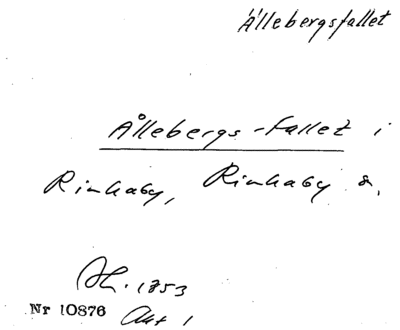 Ållebergsfallet
Ållebergs-fallet i
Rinkaby, Rinkaby s.
1853
Nr 10876 Akt 1